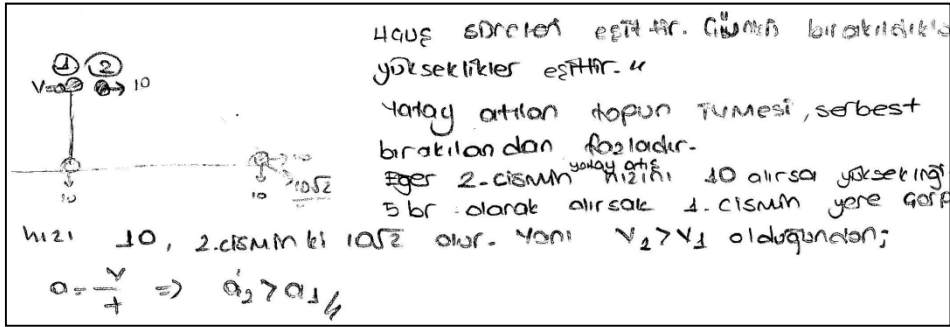 Uçuş süreleri eşittir. Çünkü bırakıldıkları
yükseklikler eşittir."
Yatay atılan topun ivmesi, serbest
bırakılandan fazladır.
Eger 2. cismin yatay atış hızını 10 alırsa yüksekliği
5 br olarak alırsak 1. cismin yere çarp
hızı 10, 2. cismin ki 10√2 olur. Yani V₂>V₁ olduğundan;
a = v/t ⇒ a₂>a₁
1 2
V=0 10
10 10 10
10√2